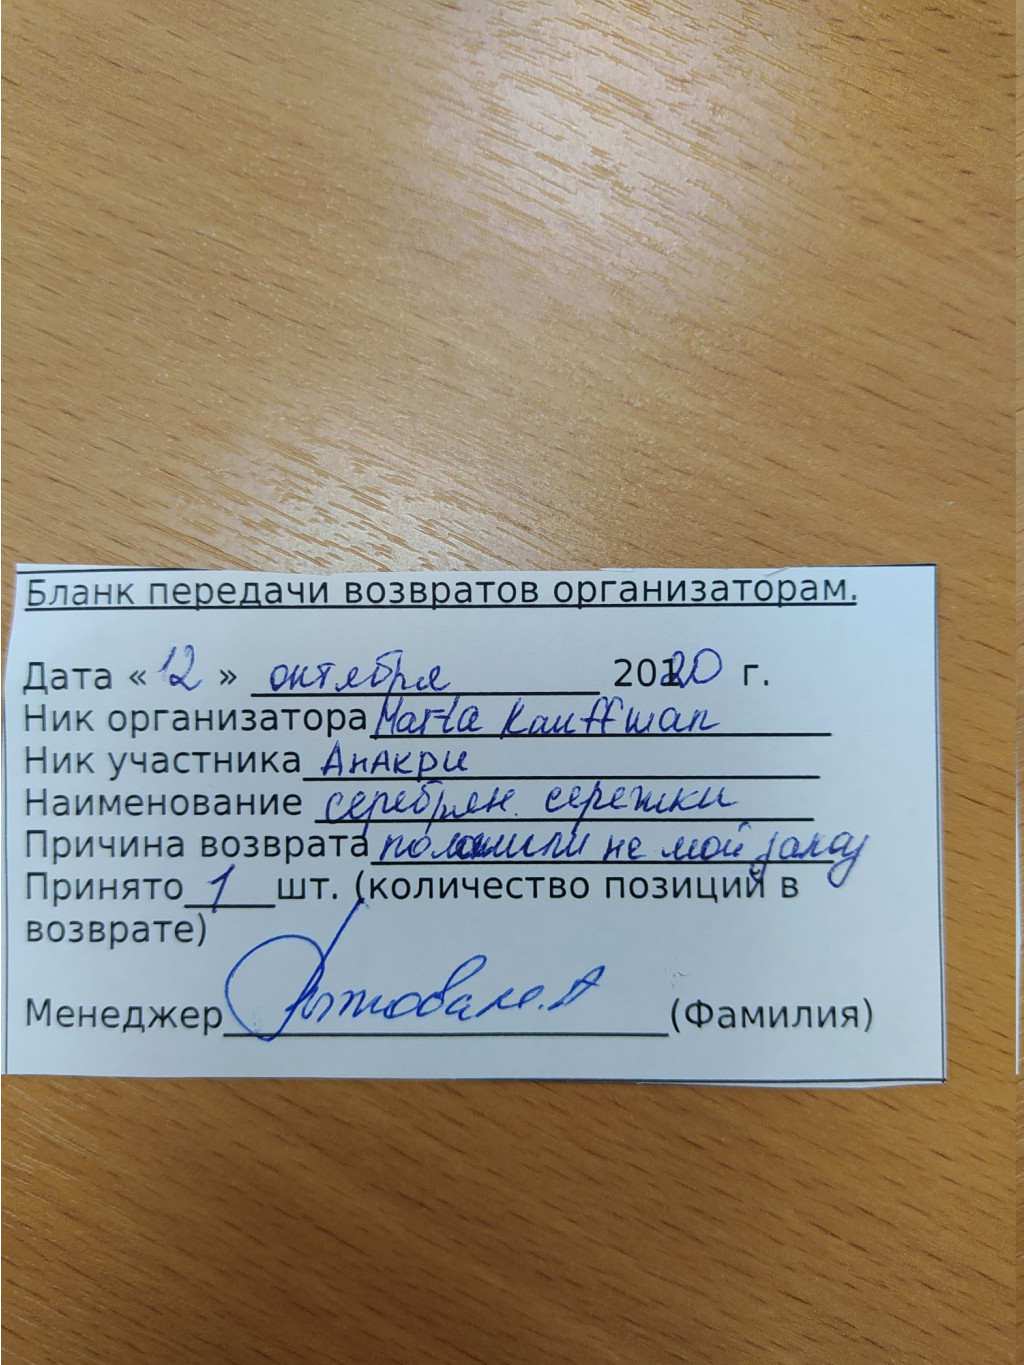 Бланк передачи возвратов организаторам.
Дата « 12 » октября 2020 г.
Ник организатора Marta Kauffman
Ник участника Анакри
Наименование серебрян. сережки
Причина возврата положили не мой заказ
Принято 1 шт. (количество позиций в
возврате)
Менеджер (Фамилия)